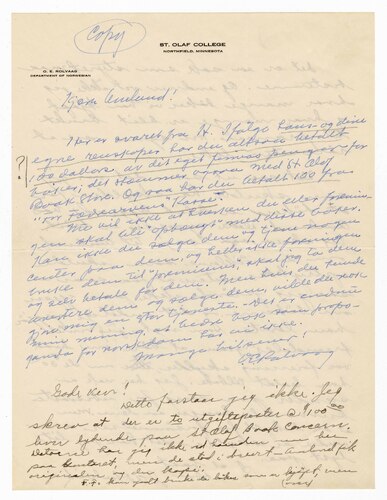 Copy
ST. OLAF COLLEGE
NORTHFIELD, MINNESOTA
O. E. ROLVAAG
DEPARTMENT OF NORWEGIAN
Kjære Amlund!
Her er svaret fra H. Ifølge hans og dine
egne har du altsaa betalt
?
100 dollars av dit eget for
bøker; det stemmer ogsaa med St Olaf
Book Store. Og saa har du betalt 100 fra
"For Fædrearvens" Kasse.
Nu vil ikke at hverken du eller forenin-
gen skal bli med disse bøker.
Kan ikke du sælge dem og tjene nogen
center paa dem, og heller ikke foreningen
bruke dem til "premiums", skal jeg ta dem
og selv betale for dem. Men hvis du kunde
dem og sælge dem, vilde du nok
gjøre mig en stor tjeneste. Det er endnu
min mening, at bedre bok som propa-
ganda for norskdom har vi ikke.
Mange hilsener!
O E Rølvaag
Gode Ven!
Dette forstaar jeg ikke. Jeg
skrev at der er to utgiftsposter @ $100.00
hver lydende paa St Olaf Book Concern.
Dette har jeg ikke ved haanden nu her
paa kontoret men de stod i brevet - Amlund fik
originalen og den kopi.